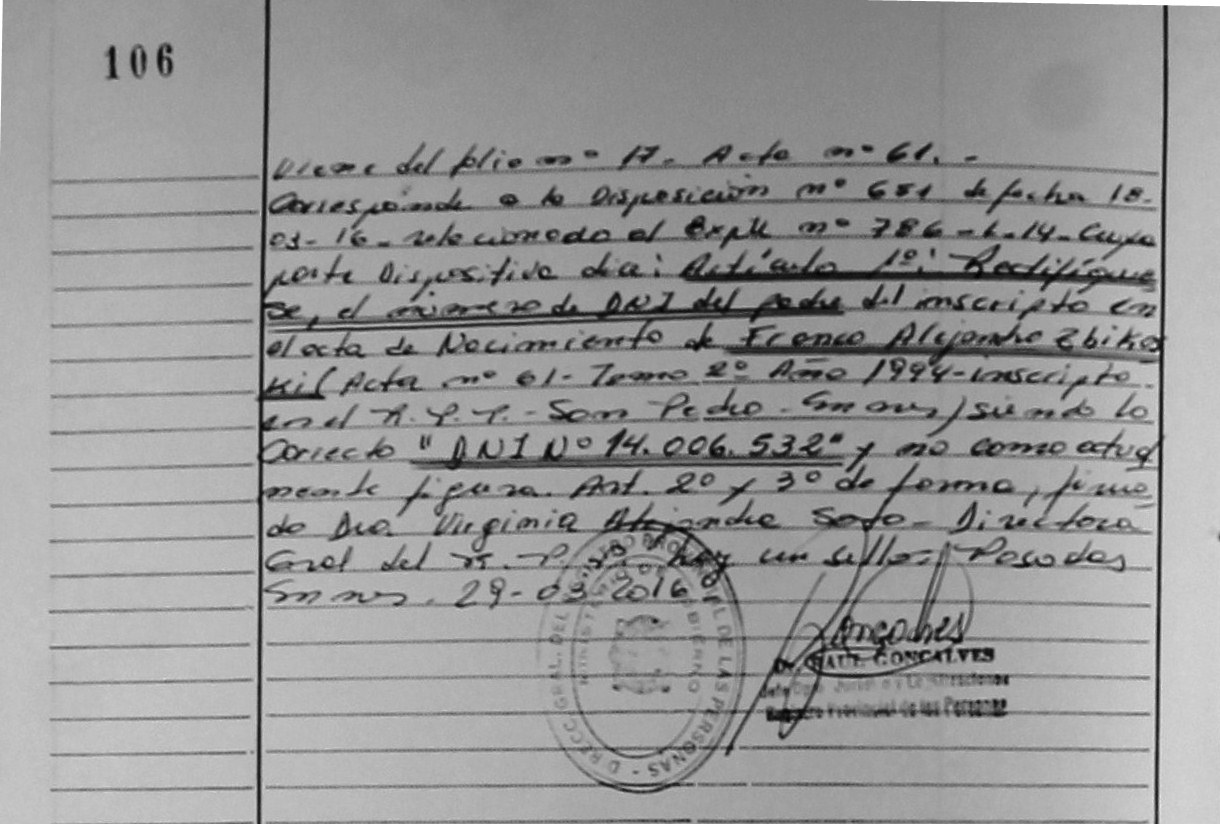 106
Viene del folio nº 17. Acta nº 61. -
Corresponde a la Disposición nº 651 de fecha 18-
03-16- relacionado al Expte nº 786-L-14- Cuya
parte Dispositiva dice: Artículo 1º: Rectifíque
se, el número de DNI del padre del inscripto en
el acta de Nacimiento de Franco Alejandro Zbikos
ki (Acta nº 61- Tomo 2º Año 1994- inscripto
en el R. P. P. - San Pedro - Smnes) siendo lo
Correcto "DNI Nº 14.006.532" y no como actual
mente figura. Art. 2º y 3º de forma, firma
do Dra. Virginia Alejandra Soto - Directora
Gral del R. P. P. hay un sello. Posadas
Smnes. 29-03-2016
DIRECC. GRAL. DEL REGISTRO PROVINCIAL DE LAS PERSONAS -
MINISTERIO DE GOBIERNO
Dr. RAUL GONCALVES
Registro Provincial de las Personas